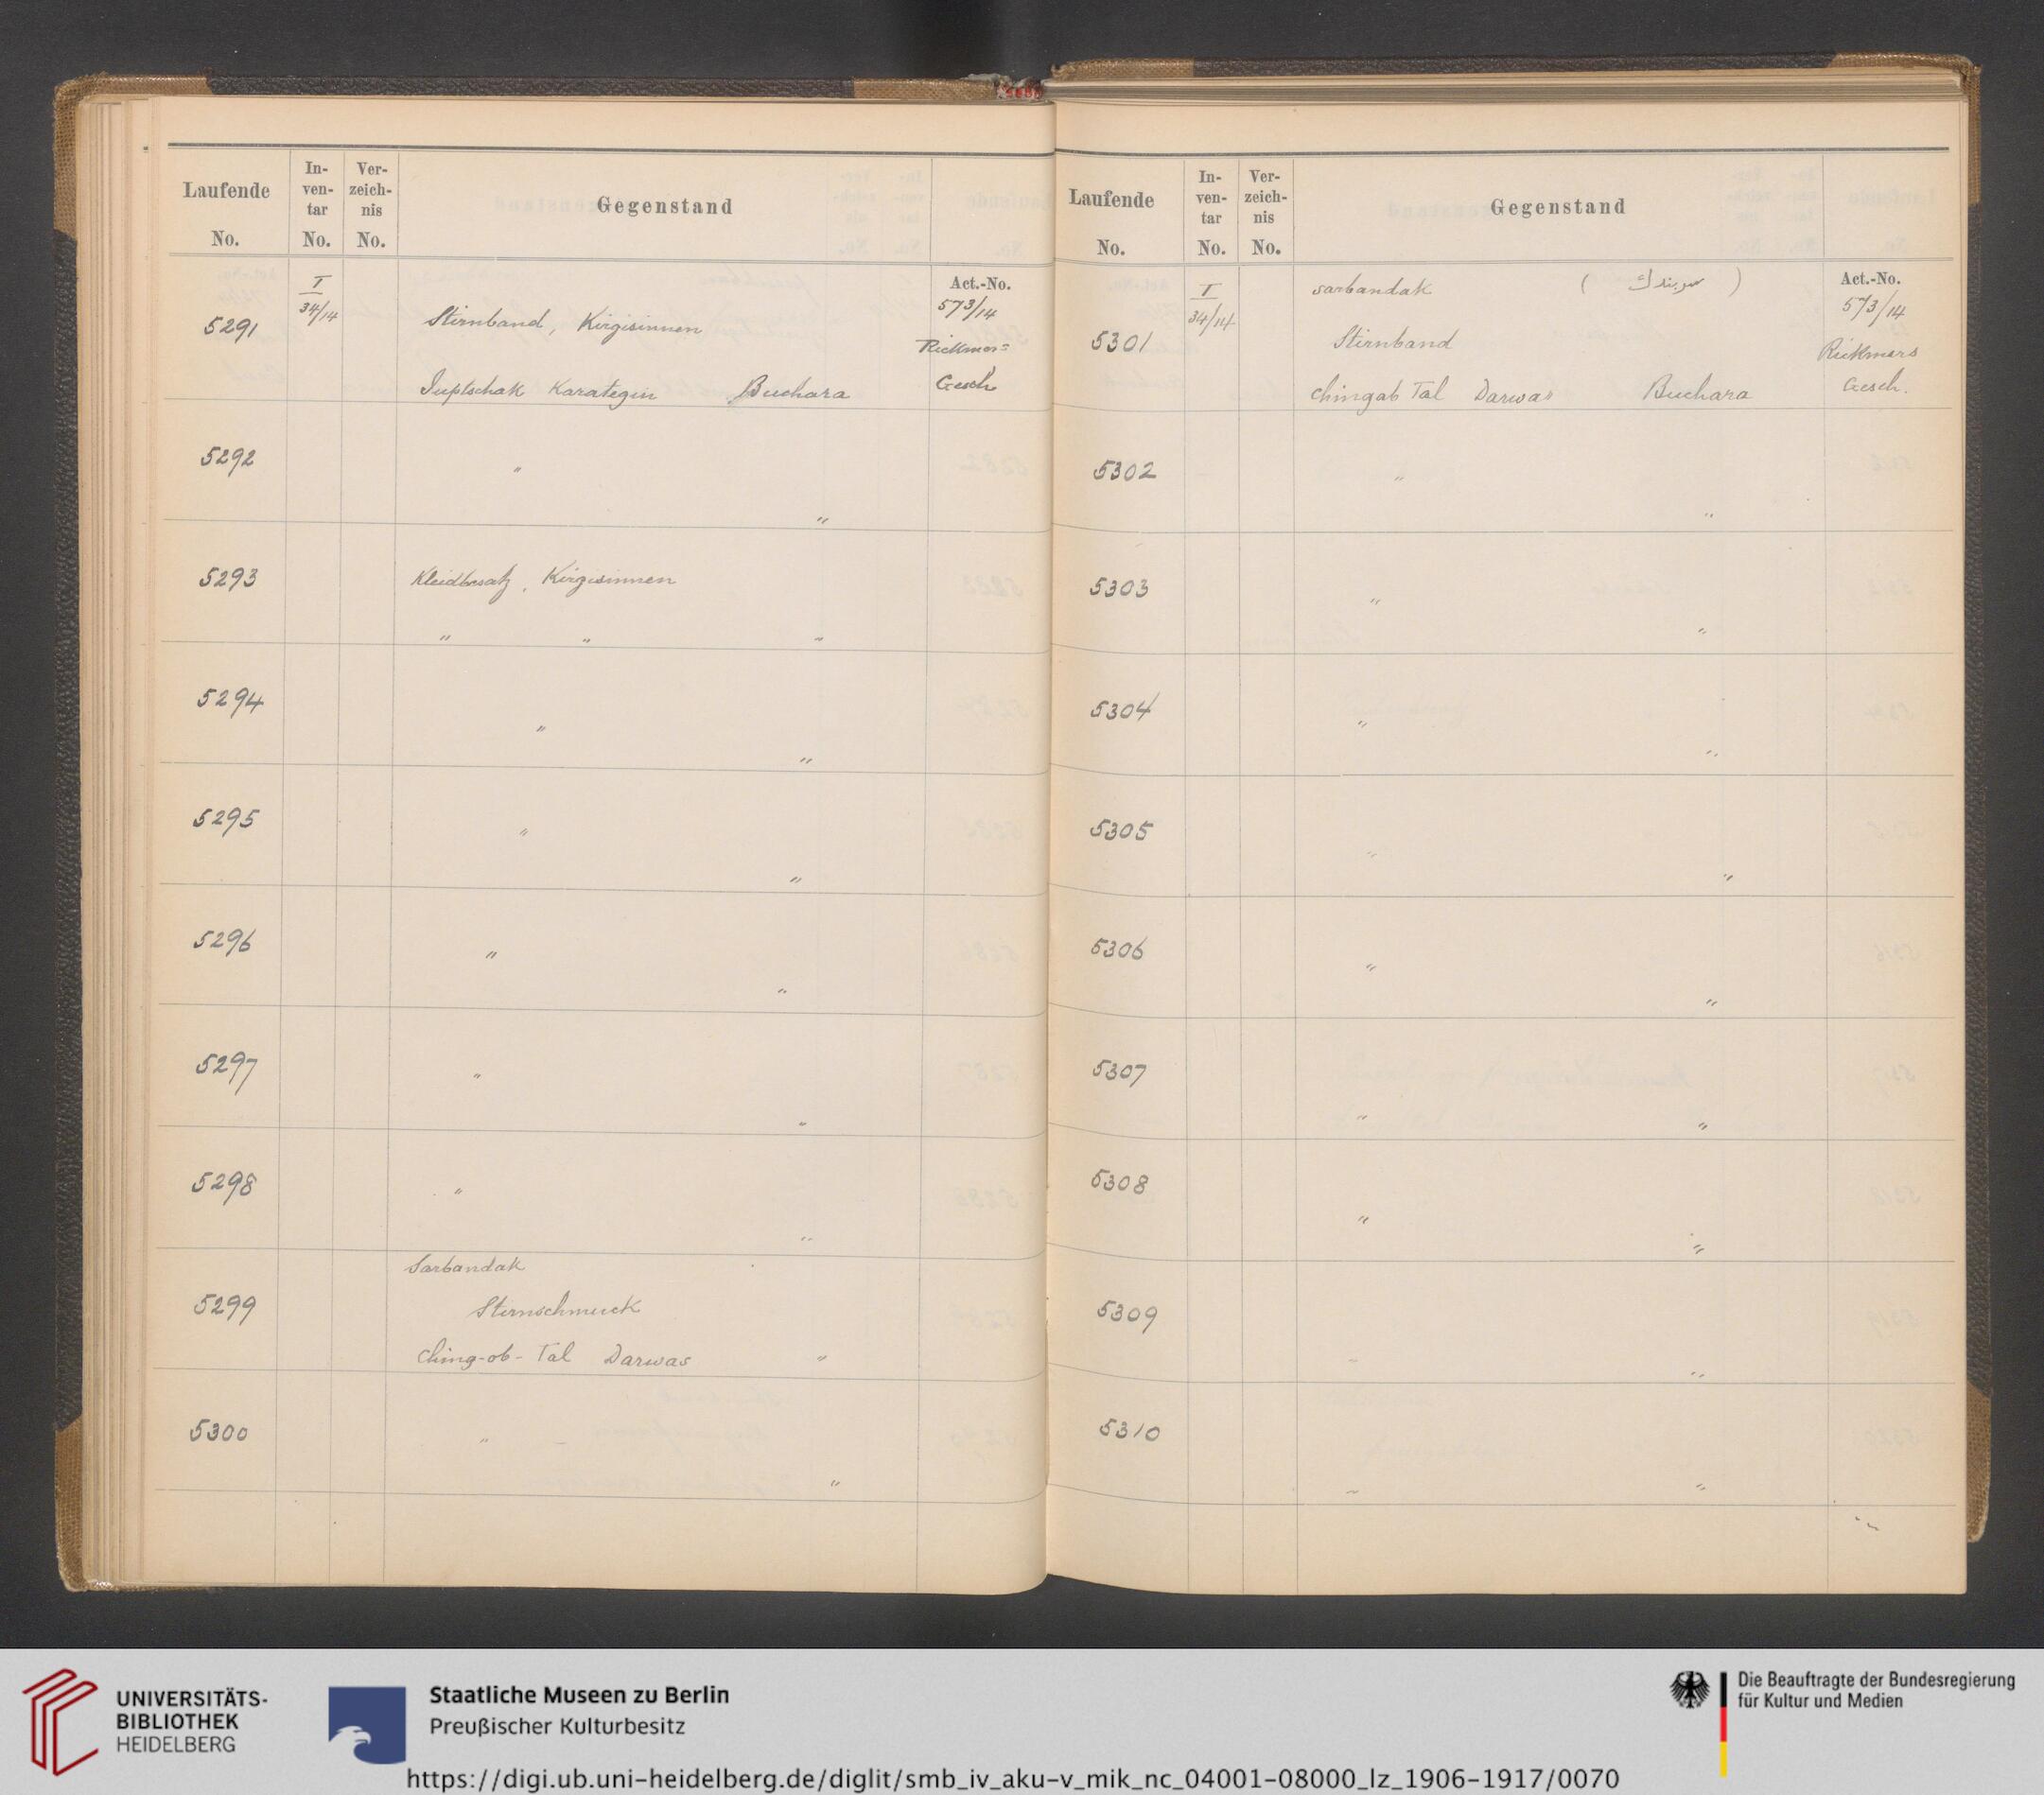 Laufende No.
In-ven-tar No.
Ver-zeich-nis No.
Gegenstand
Act.-No.
I
34/14
573/14
5291
Stirnband, Kirgisinnen
Rickmers
Juptschak Karategin Buchara
Gesch
5292
"
"
5293
Kleidbesatz, Kirgisinnen
" " "
5294
"
"
5295
"
"
5296
"
"
5297
"
"
5298
"
"
Sarbandak
5299
Stirnschmuck
Ching-ob-Tal Darwas "
5300
" –
"
Laufende No.
In-ven-tar No.
Ver-zeich-nis No.
Gegenstand
Act.-No.
I
34/14
sarbandak ( سربندك )
573/14
5301
Stirnband
Rickmers
Chingab Tal Darwas Buchara
Gesch.
5302
"
"
5303
"
"
5304
"
"
5305
"
"
5306
"
"
5307
" "
5308
"
"
5309
– "
5310
– "
UNIVERSITÄTS-
BIBLIOTHEK
HEIDELBERG
Staatliche Museen zu Berlin
Preußischer Kulturbesitz
Die Beauftragte der Bundesregierung
für Kultur und Medien
https://digi.ub.uni-heidelberg.de/diglit/smb_iv_aku-v_mik_nc_04001-08000_lz_1906-1917/0070